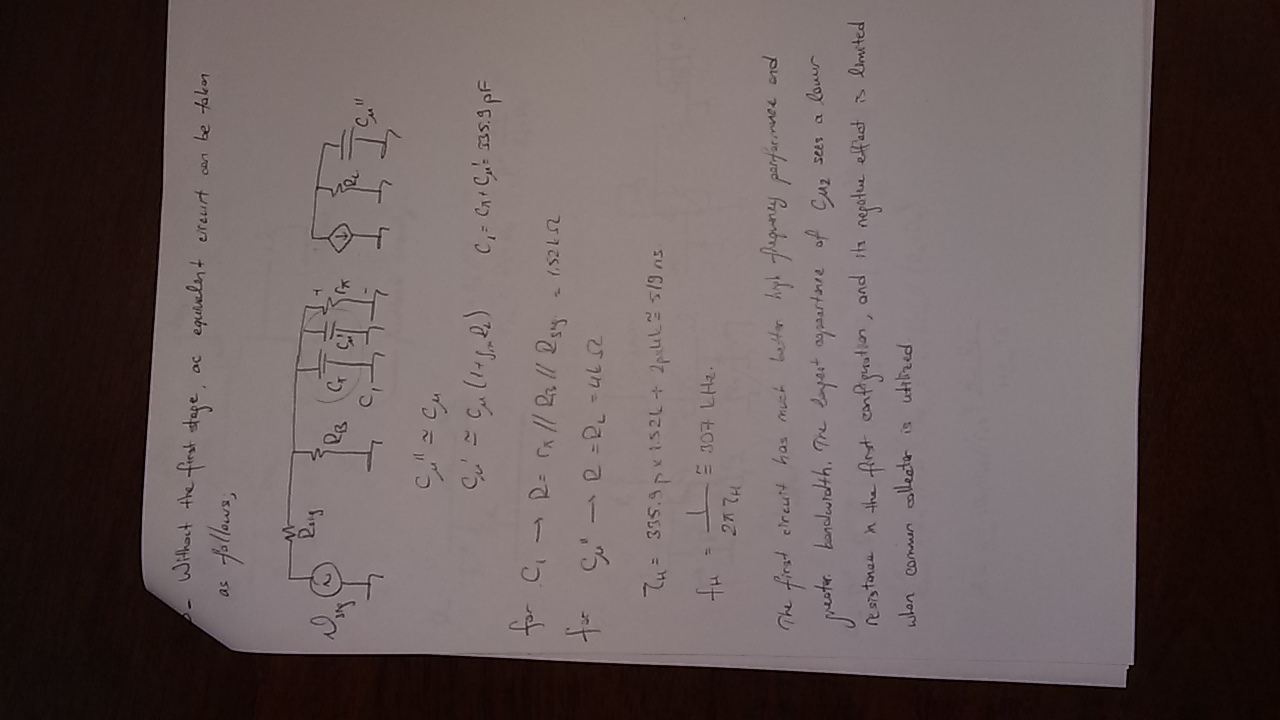 - Without the first stage, ac equivalent circuit can be taken
as follows;
Rsig
RB
Cπ
Cμ'
rπ
+
-
RL
Cμ''
C1
~
υsig
Cμ'' ≅ Cμ
Cμ' ≅ Cμ (1+gmRL) C1 = Cπ + Cμ' = 335.9 pF
for C1 → R = rπ // RB // Rsig = 1.52kΩ
for Cμ'' → R = RL = 4kΩ
τH = 335.9p x 1.52k + 2px4k ≅ 519 ns.
fH = 1 / 2πτH ≅ 307 kHz.
The first circuit has much better high frequency performance and
greater bandwidth. The largest capacitance of Cμ2 sees a lower
resistance in the first configuration, and its negative effect is limited
when common collector is utilized